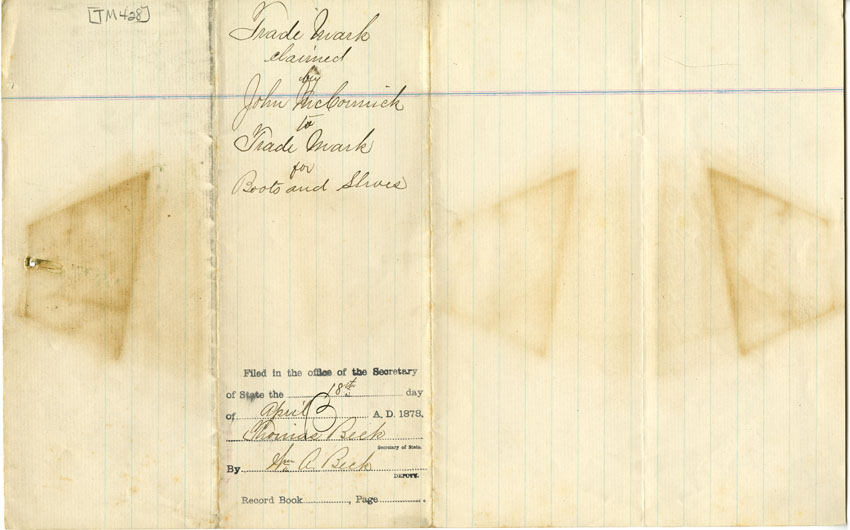 [TM428]
Trade Mark
claimed
by
John McCormick
to
Trade Mark
for
Boots and Shoes
Filed in the office of the Secretary
of State the 18th day
of April A. D. 1878.
Thomas Beck
Secretary of State.
By Wm A. Beck
DEPUTY.
Record Book , Page .